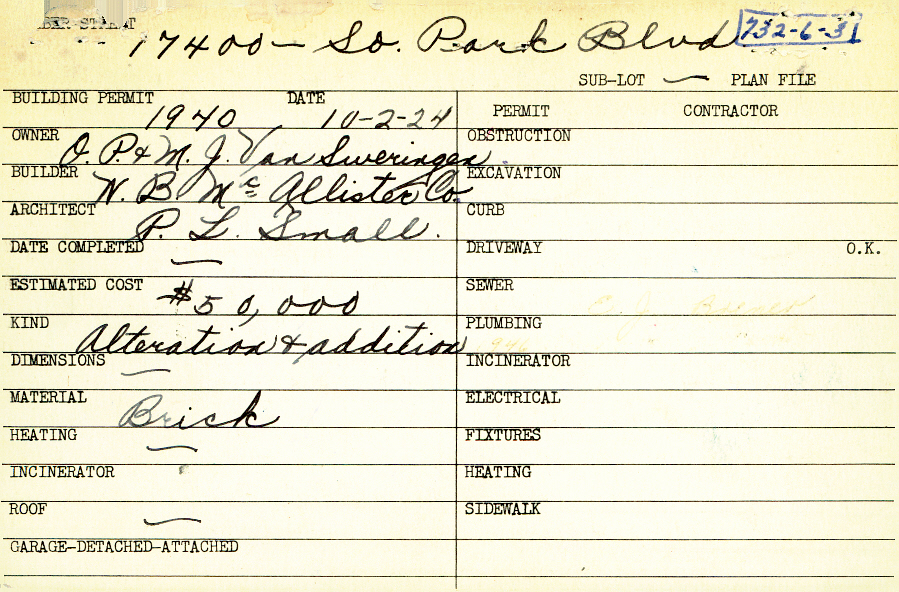 17400 - So. Park Blvd 732-6-31
SUB-LOT — PLAN FILE
BUILDING PERMIT 1940 DATE 10-2-24
PERMIT CONTRACTOR
OWNER O. P. & M. J. Van Sweringen
OBSTRUCTION
BUILDER W. B. Mc Allister Co.
EXCAVATION
ARCHITECT P. L. Small.
CURB
DATE COMPLETED —
DRIVEWAY O.K.
ESTIMATED COST $50,000
SEWER
KIND Alteration & addition
PLUMBING
DIMENSIONS —
INCINERATOR
MATERIAL Brick
ELECTRICAL
HEATING —
FIXTURES
INCINERATOR
HEATING
ROOF —
SIDEWALK
GARAGE-DETACHED-ATTACHED